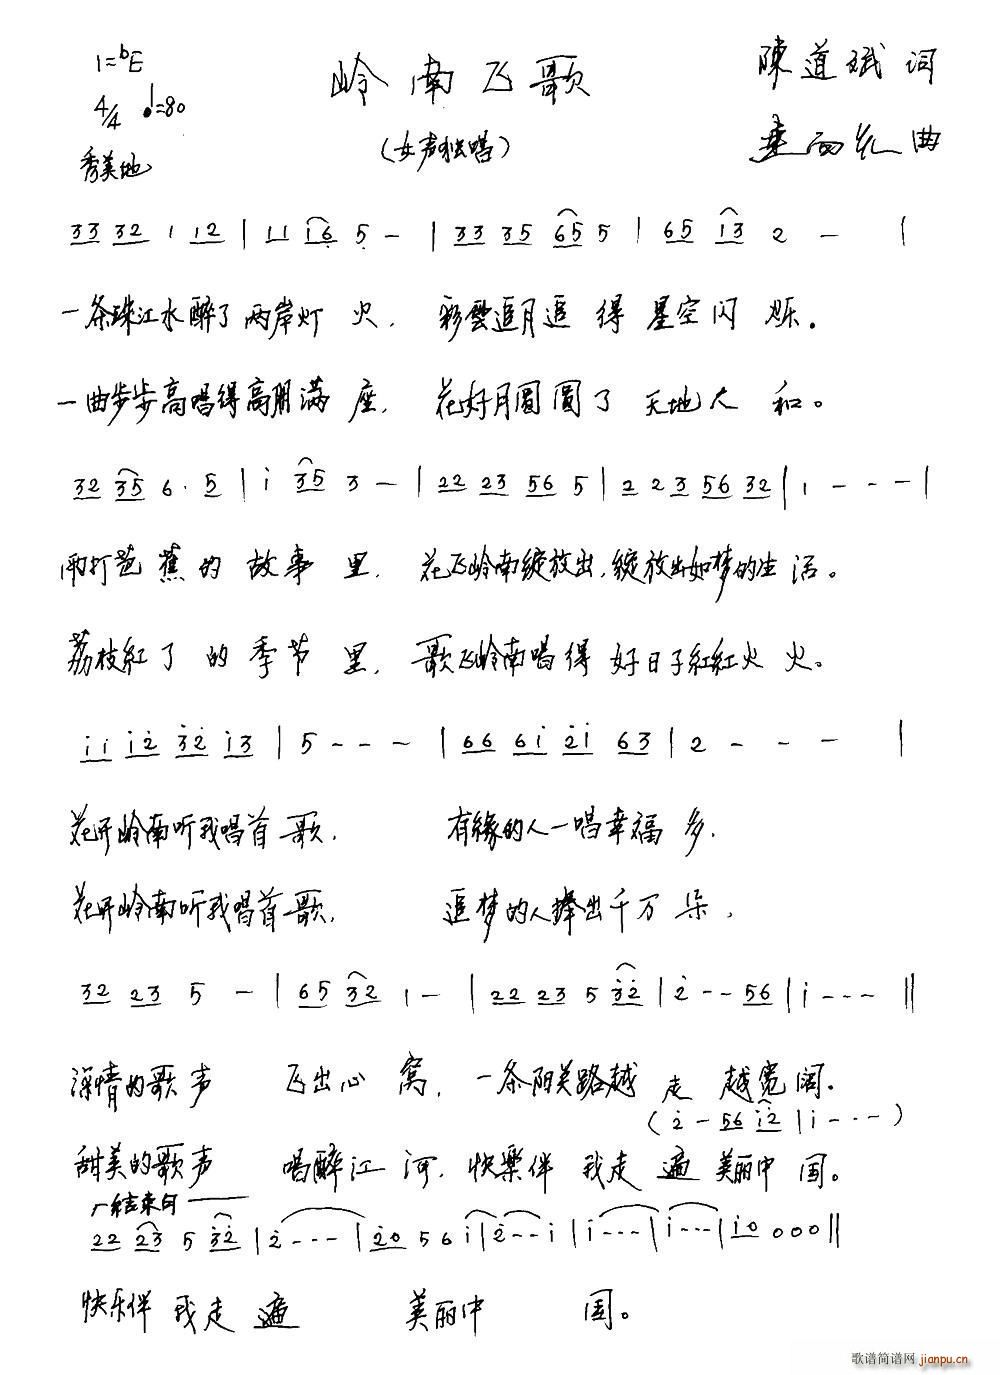 1=ᵇE
岭南飞歌
陳道斌 词
4/4 ♩=80
(女声独唱)
曲
秀美地
33 32 1 12 | 11 16 5 - | 33 35 65 5 | 65 13 2 - |
一条珠江水醉了两岸灯 火， 彩雲追月追 得 星空闪 烁。
一曲步步高唱得高朋满 座， 花好月圓圓了 天地人 和。
32 35 6· 5 | i 35 3 - | 22 23 56 5 | 2 2 3 56 32 | 1 - - - |
雨打芭 蕉 的 故 事 里， 花飞岭南绽放出，绽放出如梦的生 活。
荔枝紅了 的 季节 里， 歌飞岭南唱得 好日子紅紅火 火。
i i i 2̇ 3̇2̇ i3 | 5 - - - | 66 6i 2̇i 63 | 2 - - - |
花开岭南听我唱首 歌， 有緣的人一唱幸福 多，
花开岭南听我唱首歌， 追梦的人捧出千万 朵，
32 23 5 - | 65 32 1 - | 22 23 5 3̇2̇ | 2̇ - - 56 | i - - - ||
深情的歌 声 飞出心 窝，一条阳关路越 走 越宽阔。
(2̇ - 56 i2̇ | i - - - )
甜美的歌声 唱醉江 河，快樂伴 我走 遍 美丽中 国。
结束句
22 23 5 3̇2̇ | 2̇ - - - | 2̇0 5 6 i | 2̇ - - i | i - - - | i - - - | i0 0 0 0 ||
快乐伴 我走 遍 美丽中 国。
歌谱简谱网 jianpu.cn